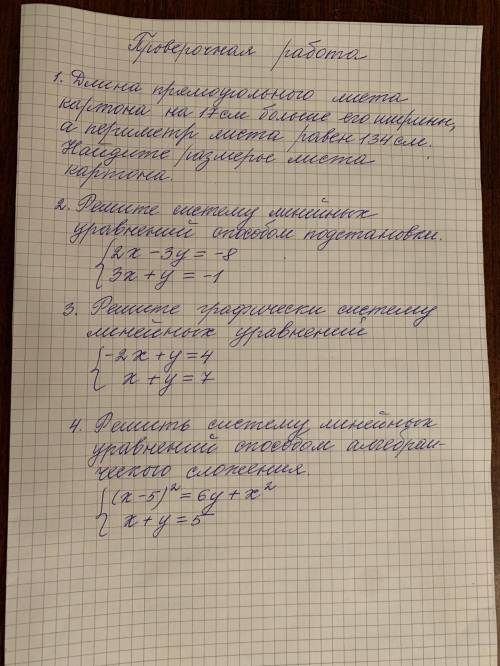 Проверочная работа
1. Длина прямоугольного листа
картона на 17 см больше его ширины,
а периметр листа равен 134 см.
Найдите размеры листа
картона.
2. Решите систему линейных
уравнений способом подстановки.
2x - 3y = -8
3x + y = -1
3. Решите графически систему
линейных уравнений
-2x + y = 4
x + y = 7
4. Решить систему линейных
уравнений способом алгебраи-
ческого сложения.
(x - 5)² = 6y + x²
x + y = 5